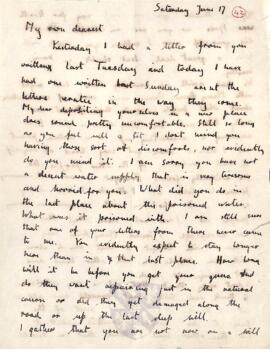 Saturday June 17
42
My own dearest
Yesterday I had a letter from you
written last Tuesday and today I have
had one written last Sunday
letters in the way they come.
My in a new place
does sound pretty uncomfortable. Still so long
as you feel well & fit I don't mind you
having those sort of discomforts, nor evidently
do you mind it. I am sorry you have not
a decent water supply that is very tiresome
and horrid for you. What did you do in
the last place about the poisoned water.
What was it poisoned with. I am still sure
that one of your letters from there never came
to me. You evidently expect to stay longer
here than in that last place. How long
will it be before you get your guns And
do they want repairing out in the natural
course or did they get damaged along the
road or up the last steep hill.
I gather that you are not now on a hill